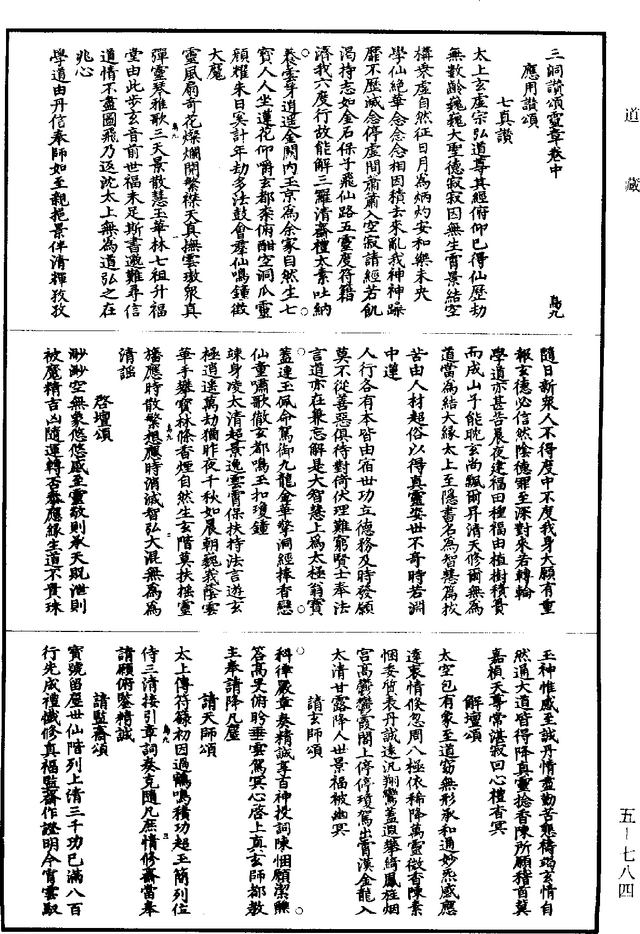 道藏
三洞讚頌靈章卷中
鳥九
應用讚頌
七真讚
太上玄虛宗弘道尊其經俯仰已得仙歷劫
無數齡巍巍大聖德寂寂因無生霄景結空
構衆虛自然征日月為炳灼安和樂未央
學仙絕華念念念相因積去來亂我神神躁
靡不歷滅念停虛閒蕭蕭入空寂請經若飢
渴持志如金石保子飛仙路五靈度符籍
濟我六度行故能解三羅清齋禮太素吐納
養雲牙逍遥金闕內玉京為余家自然生七
寶人人坐蓮花仰嚼玄都柰俯酣空洞瓜靈
顏耀朱日冥計年劫多法鼓會羣仙鳴鐘徵
大魔
靈風扇奇花燦爛開繁襟天真撫雲璈衆真
彈靈琴雅歌三天景散慧玉華林七祖升福
堂由此步玄音前世福未足斯書邈難尋信
道情不盡圖飛乃返沈太上無為道弘之在
兆心
學道由丹信奉師如至親挹景伴清輝孜孜
隨日新衆人不得度中不度我身大願有重
報玄德必信然陰德罪至深對來若轉輪
學道亦甚苦晨夜建福田種福由植樹積貴
而成山子能脫玄尚飄爾昇清天修爾無為
道當為結大緣太上至隱書名為智慧為拔
苦由人材超俗以得真靈姿世不奇時若淵
中蓮
人行各有本皆由宿世功立德務及時發願
莫不從善惡俱待對倚伏理難窮賢士奉法
言道亦在兼忘解是大智慧上為太極翁寶
蓋連玉佩命駕御九龍金華擎洞經捧香戀
仙童嘯歌徹玄都鳴玉扣瓊鍾
竦身凌太清超景逸雲霄保扶持法言遊玄
極逍遥萬劫猶昨夜千秋如晨朝巍峩蔭雲
華手攀寶林條香煙自然生玄階莫扶搖靈
旛應時散繁想應時消滅智弘大混無為為
清謡
啓壇頌
渺渺空無象悠悠感至靈敬則承天貺泄則
被魔精吉凶隨運轉否泰應緣生道不貴珠
玉神惟感至誠丹情虚勤苦懇禱竭玄情自
然通大道皆得降真靈捻香陳所願稽首冀
嘉禎天尊常湛寂回心禮杳冥
解壇頌
太空包有象至道窈無形承和通妙炁感應
達衷情倏忽周八極依稀降萬靈徵香陳素
悃委質表丹誠遠汎翔鸞蓋迴攀綺鳳旌烟
宮高鬱鬱霞閣上停停瓊駕出霄漢金龍入
太清甘露降人世景福被幽冥
請玄師頌
科律嚴章奏精誠専百神投詞陳悃願潔饌
荅高旻俯盻垂雲駕冥心啓上真玄師都教
主奉請降凡塵
請天師頌
太上傳符籙初因過鶴鳴積功超玉簡列位
侍三清接引章詞奏克隨凡庶情修齋當奉
請願俯鑒精誠
請監齋頌
寶號留塵世仙階列上清三千功已滿八百
行先成禮懺修真福監齋作證明今宵雲馭
五-七八四